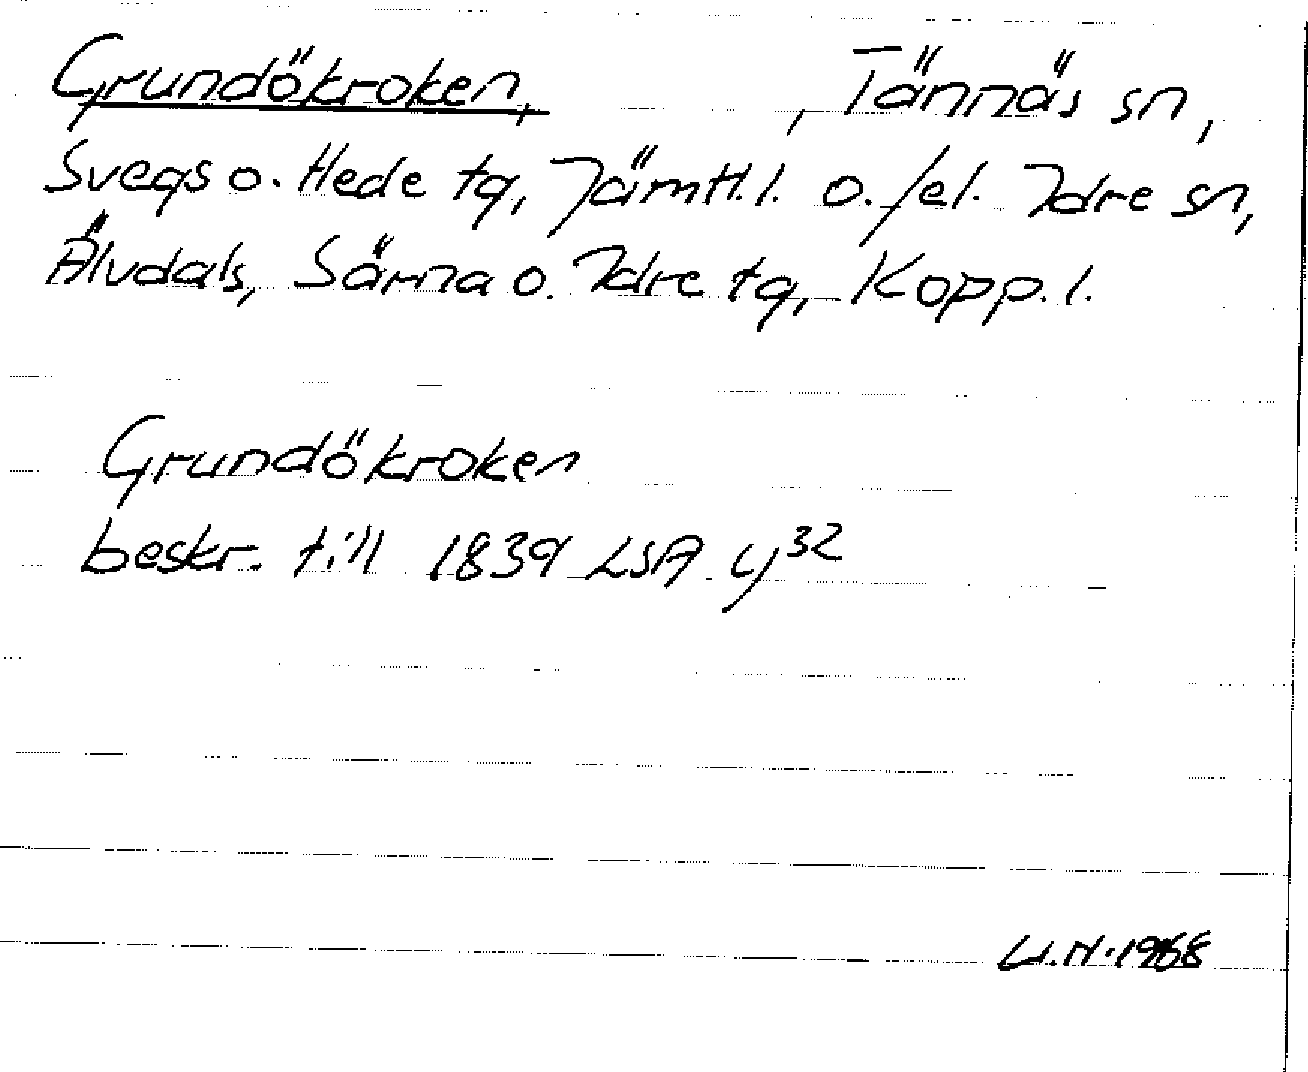 Grundökroken, , Tännäs sn,
Svegs o. Hede tg, Jämtl. l. o./el. Idre sn,
Älvdals, Särna o. Idre tg, Kopp. l.
Grundökroken
beskr. till 1839 LSA y³²
U.N. 1968